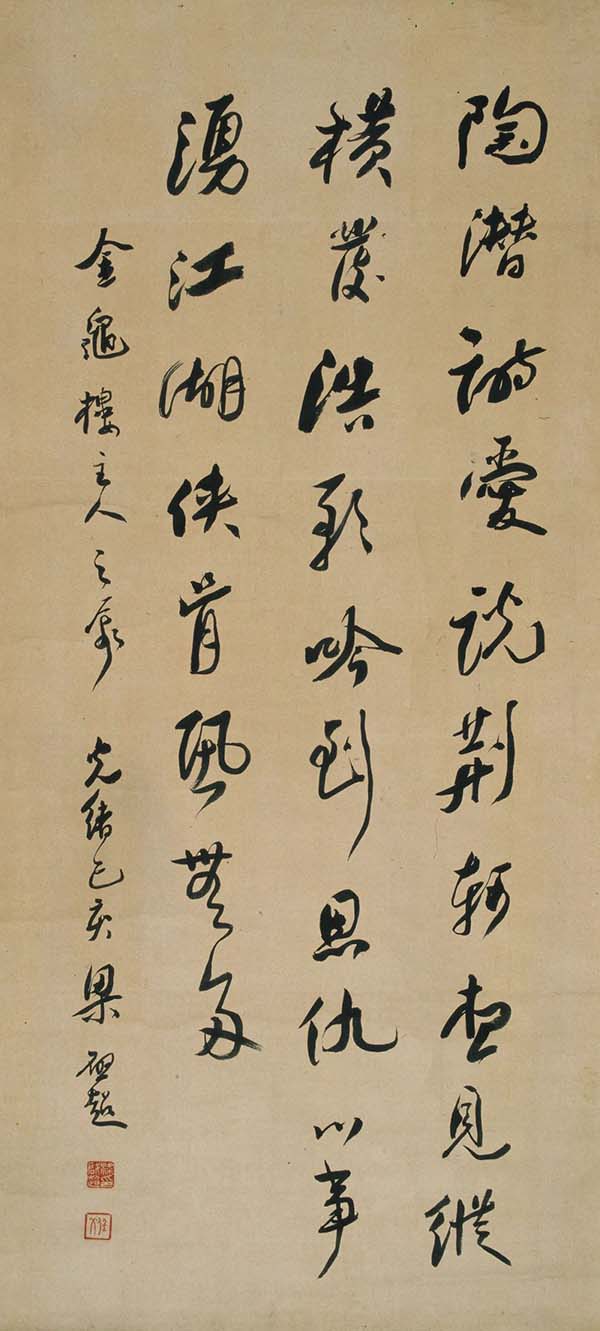 陶潛詩愛說荊軻想見縱
橫發浩歌吟到恩仇心事
湧江湖俠骨風無多
金龜樓主人之 光緒己亥梁啟超